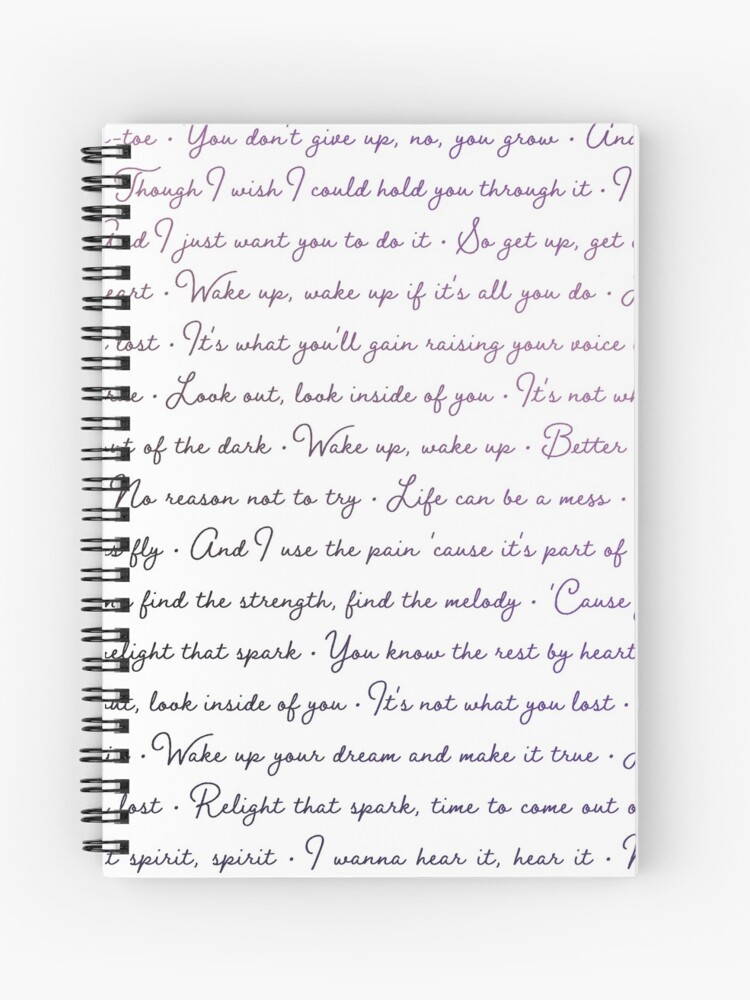 -toe · You don't give up, no, you grow · And
Though I wish I could hold you through it · I
And I just want you to do it · So get up, get
eart · Wake up, wake up if it's all you do ·
lost · It's what you'll gain raising your voice
rue · Look out, look inside of you · It's not wh
out of the dark · Wake up, wake up · Better
No reason not to try · Life can be a mess ·
fly · And I use the pain 'cause it's part of
find the strength, find the melody · 'Cause
relight that spark · You know the rest by heart
out, look inside of you · It's not what you lost ·
· Wake up your dream and make it true ·
lost · Relight that spark, time to come out o
t spirit, spirit · I wanna hear it, hear it ·